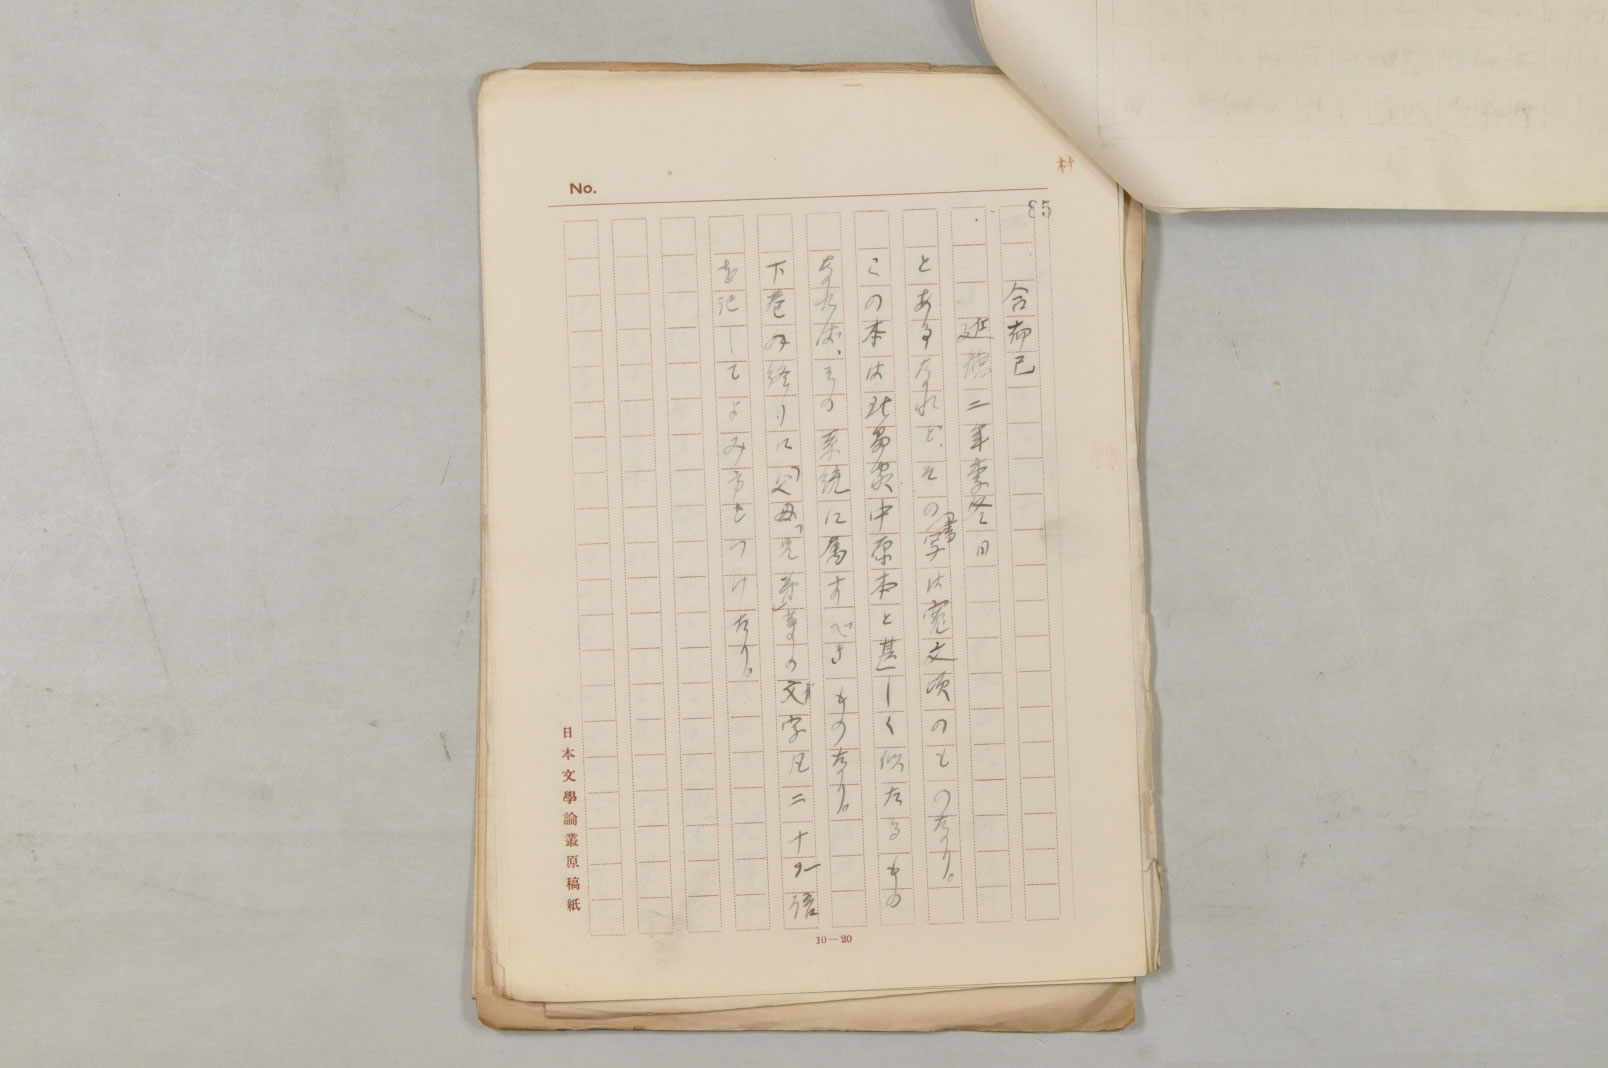 No.
35
合命已
延徳二年季冬日
とあるなれど、その書写は寛文頃のものなり。
この本は此易然中原本と甚しく似たるもの
なれば、その系統に属すべきものなり。
下巻の終りに「父母」「兄弟」等の文字凡二十
を記してよみ方をつけたり。
日本文學論叢原稿紙
10—20